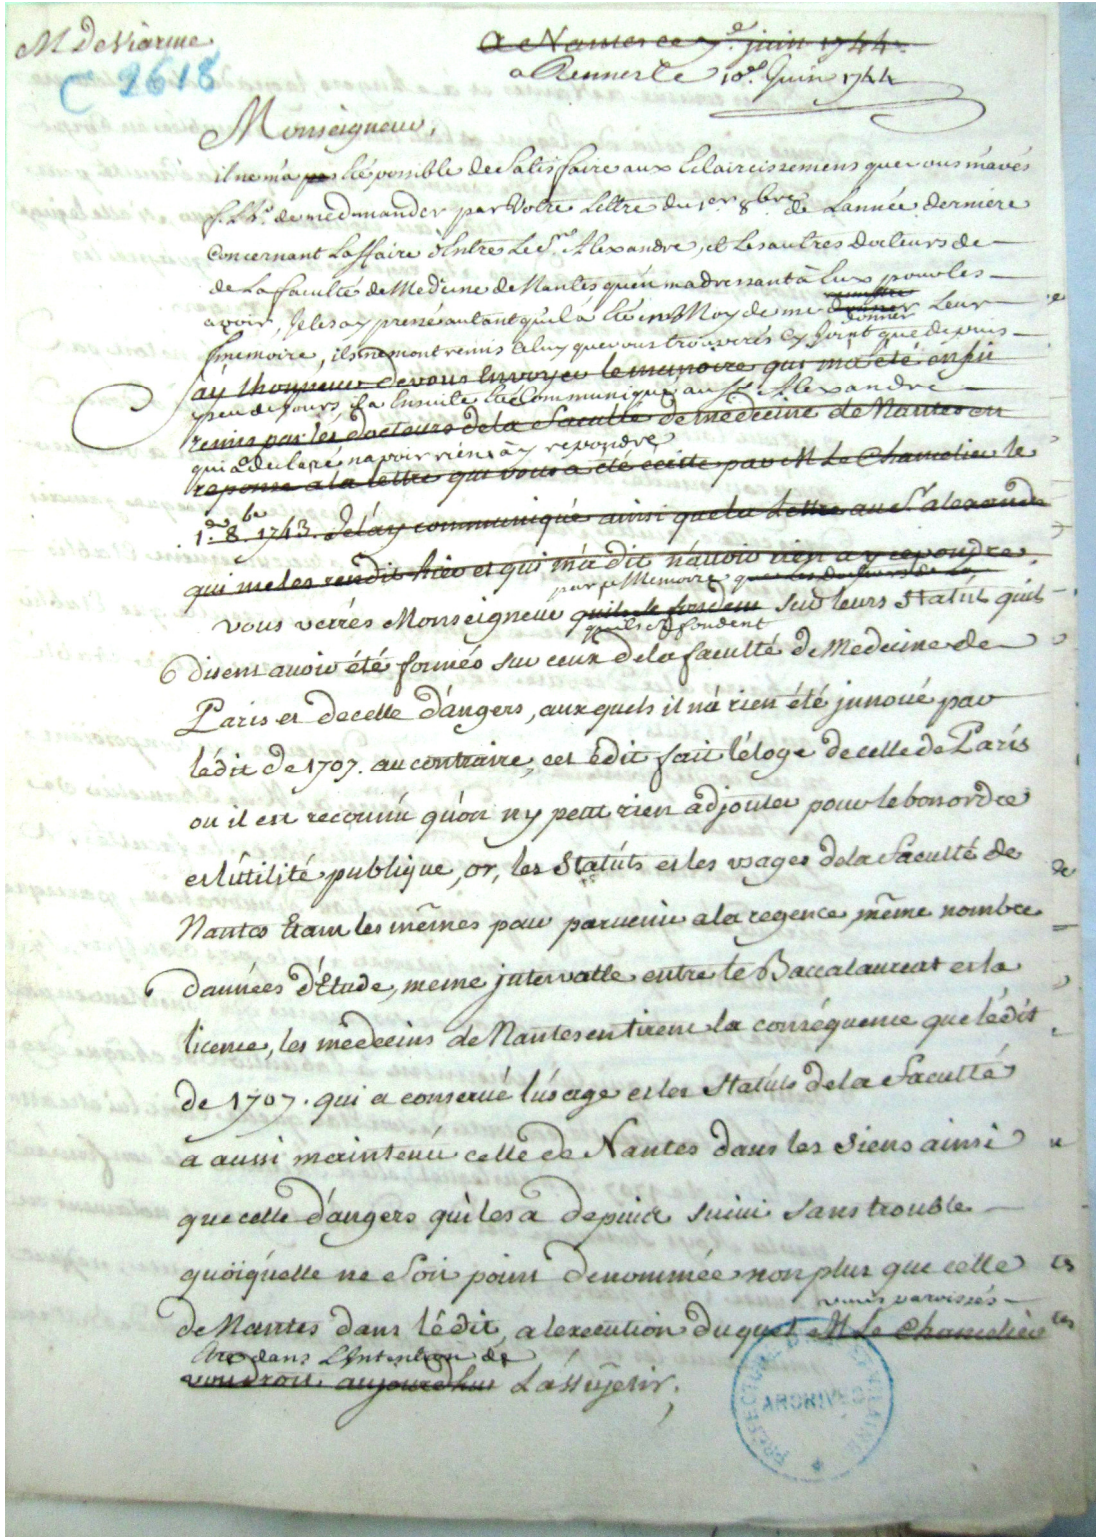 M DeViarme
C 2618
a Nantes ce 7e. juin 1744.
a Rennes le 10e. Juin 1744
Monseigneur,
il ne m'a pas Eté possible de Satisfaire aux Eclaircissemens que vous m'avés
de me demander par Votre Lettre du 1er. 8bre. de L'année derniere
Concernant L'affaire d'Entre Le Sr. Alexandre, et Les autres docteurs de
de La faculté de Medecine de Nantes qu'en m'adressant à Eux pour les
remettre
avoir, Je les ay pressé autant qu'il a Eté en Moy de me donner Leur
donner
memoire, ils ne m'ont remis Celuy que vous trouverés Cy Joint que depuis
ay l'honneur de vous Envoyer le memoire qui m'a été enfin
peu de Jours, il a Ensuite Eté Communiqué au Sr. Alexandre
remis par les docteurs de la Faculté de medecine de Nantes en
qui a declaré n'avoir rien à y repondre
reponse a la lettre qui vous a été ecritte par M Le Chancelier le
1er. 8.bre 1743. Je l'ay communiqué ainsi que la Lettre au Sr. alexandre
qui me les rendit hier et qui m'a dit n'avoir rien a y repondre.
par ce Memoire que les Docteurs de La
vous verrés Monseigneur qu'ils se fondent sur leurs Statuts quils
quils se fondent
disent avoir été formés sur ceux de la faculté de Medecine de
Paris et de celle d'angers, aux quels il n'a rien été innoué par
l'édit de 1707. au contraire, cet édit fait l'éloge de celle de Paris
ou il est reconnû qu'on n'y peut rien adjouter pour le bon ordre
et l'utilité publique, or, les Statúts et les usages de la Faculté de
Nantes Etant les mêmes pour paruenir a la regence, même nombre
d'années d'Etude, meme jntervalle entre le Baccalaureat et la
licence, les medecins de Nantes en tirent la conséquence que l'édit
de 1707. qui a conserué l'usage et les Statúts de la Faculté
a aussi maintenú celle de Nantes dans les Siens ainsi
que celle d'angers qui les a depuis suiui sans trouble
quoiqu'elle ne Soit point denommée non plus que celle
vous paroissés
de Nantes dans l'édit, a l'execution du quel M Le Chancelier
être dans L'Intention de
voudroit aujourdhui L'assujetir.
PREFECTURE D'ILLE ET VILAINE
ARCHIVES